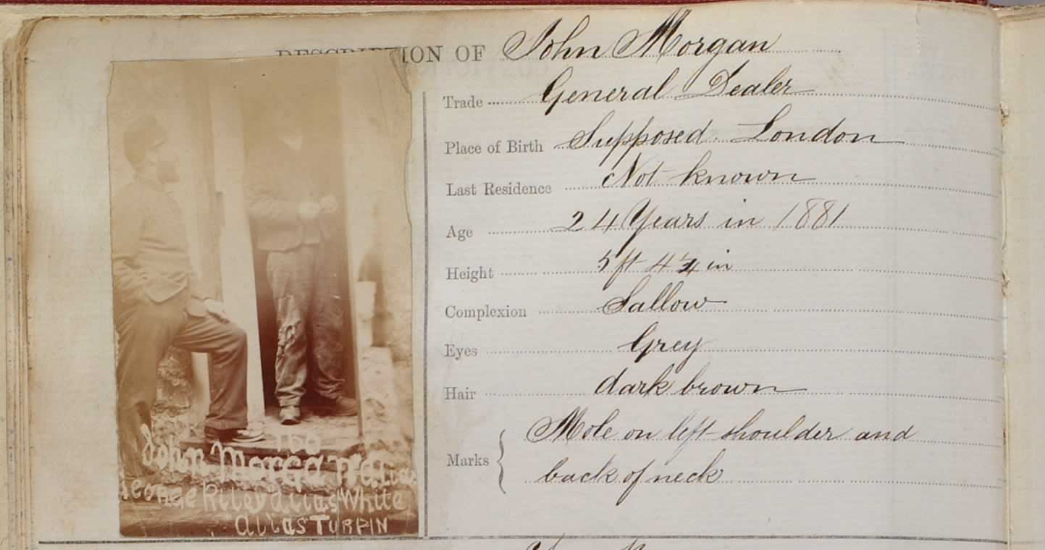 DESCRIPTION OF John Morgan
Trade General Dealer
Place of Birth Supposed London
Last Residence Not known
Age 24 Years in 1881
Height 5 ft 4 in
Complexion Sallow
Eyes Grey
Hair dark brown
Marks { Mole on left shoulder and
back of neck
John Morgan alias
George Riley alias White
alias TURPIN